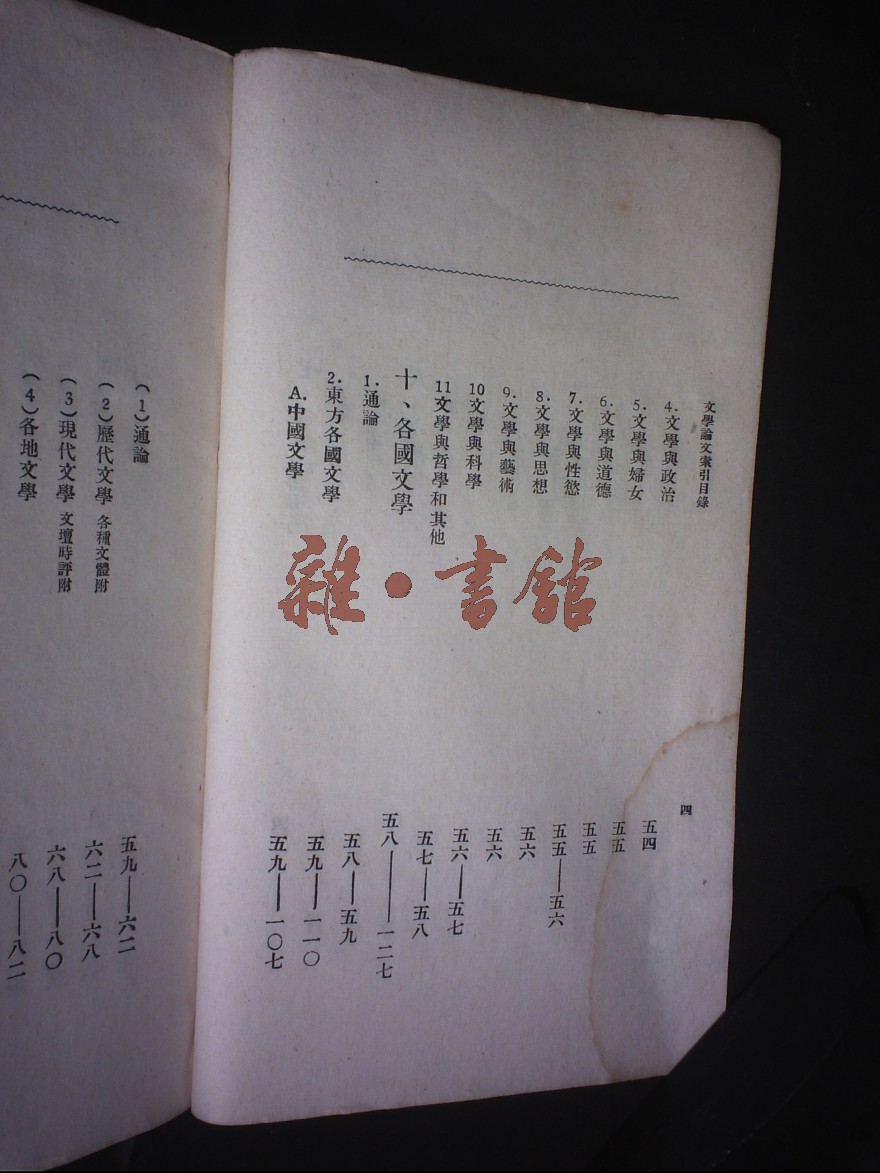 文學論文索引目錄 四
4.文學與政治 五四
5.文學與婦女 五五
6.文學與道德 五五
7.文學與性慾 五五——五六
8.文學與思想 五六
9.文學與藝術 五六
10文學與科學 五六——五七
11文學與哲學和其他 五七——五八
十、各國文學 五八——一二七
1.通論 五八——五九
2.東方各國文學 五九——一一〇
A.中國文學 五九——一〇七
(1)通論 五九——六二
(2)歷代文學 各種文體附 六二——六八
(3)現代文學 文壇時評附 六八——八〇
(4)各地文學 八〇——八二
雜·書館